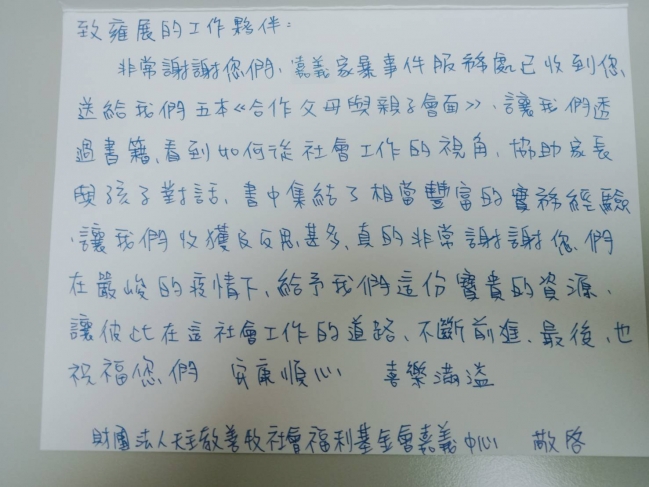 致雍展的工作夥伴：
非常謝謝您們、嘉義家暴事件服務處已收到您、
送給我們五本《合作父母與親子會面》、讓我們透
過書籍、看到如何從社會工作的視角、協助家長
與孩子對話、書中集結了相當豐富的實務經驗
、讓我們收獲及反思甚多、真的非常謝謝您們
在嚴峻的疫情下、給予我們這份寶貴的資源、
讓彼此在這社會工作的道路、不斷前進、最後、也
祝福您們 安康順心 喜樂滿溢
財團法人天主教善牧社會福利基金會嘉義中心 敬啓